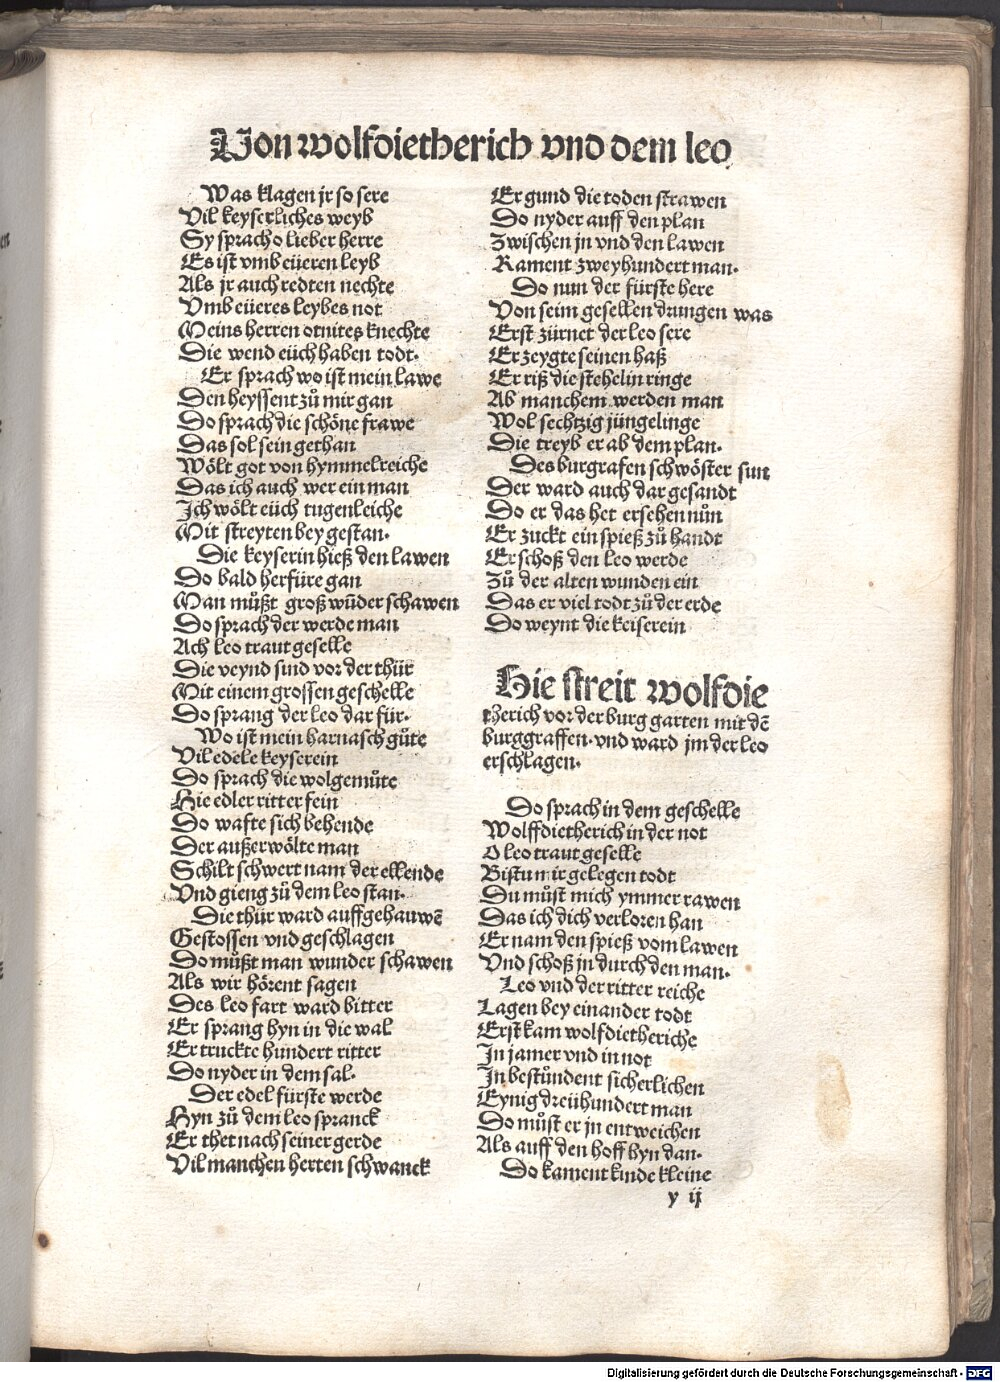 Von wolfdietherich vnd dem leo
Was klagen jr so sere
Vil keyserliches weyb
Sy sprach o lieber herre
Es ist vmb eüeren leyb
Als jr auch redten nechte
Vmb eüeres leybes not
Meins herren otnites knechte
Die wend eüch haben todt.
Er sprach wo ist mein lawe
Den heyssent zů mir gan
Do sprach die schöne frawe
Das sol sein gethan
Wölt got von hymmelreiche
Das ich auch wer ein man
Ich wölt eüch tugenleiche
Mit streyten bey gestan.
Die keyserin hieß den lawen
Do bald herfüre gan
Man můßt groß wūder schawen
Do sprach der werde man
Ach leo traut geselle
Die veynd sind vor der thür
Mit einem grossen geschelle
Do sprang der leo dar für.
Wo ist mein harnasch gůte
Vil edele keyserein
Do sprach die wolgemůte
Hie edler ritter fein
Do wafte sich behende
Der außerwölte man
Schilt schwert nam der ellende
Vnd gieng zů dem leo stan.
Die thür ward auffgehauwē
Gestossen vnd geschlagen
Do můßt man wunder schawen
Als wir hörent sagen
Des leo fart ward bitter
Er sprang hyn in die wal
Er truckte hundert ritter
Do nyder in dem sal.
Der edel fürste werde
Hyn zů dem leo spranck
Er thet nach seiner gerde
Vil manchen herten schwanck
Er gund die toden strawen
Do nyder auff den plan
Zwischen jn vnd den lawen
Rament zweyhundert man.
Do nun der fürste here
Von seim gesellen drungen was
Erst zürnet der leo sere
Er zeygte seinen haß
Er riß die stehelin ringe
Ab manchem werden man
Wol sechtzig jüngelinge
Die treyb er ab dem plan.
Des burgrafen schwöster sun
Der ward auch dar gesandt
Do er das het ersehen nůn
Er zuckt ein spieß zů handt
Er schoß den leo werde
Zů der alten wunden ein
Das er viel todt zů der erde
Do weynt die keiserein
Hie streit wolfdie
therich vor der burg garten mit dē
burggraffen. vnd ward jm der leo
erschlagen.
Do sprach in dem geschelle
Wolffdietherich in der not
O leo traut geselle
Bistu mir gelegen todt
Du můst mich ymmer rawen
Das ich dich verloren han
Er nam den spieß vom lawen
Vnd schoß jn durch den man.
Leo vnd der ritter reiche
Lagen bey einander todt
Erst kam wolfdietheriche
In jamer vnd in not
In bestůndent sicherlichen
Eynig dreühundert man
Do můst er jn entweichen
Als auff den hoff hyn dan.
Do kament kinde kleine
y ij
Digitalisierung gefördert durch die Deutsche Forschungsgemeinschaft - DFG